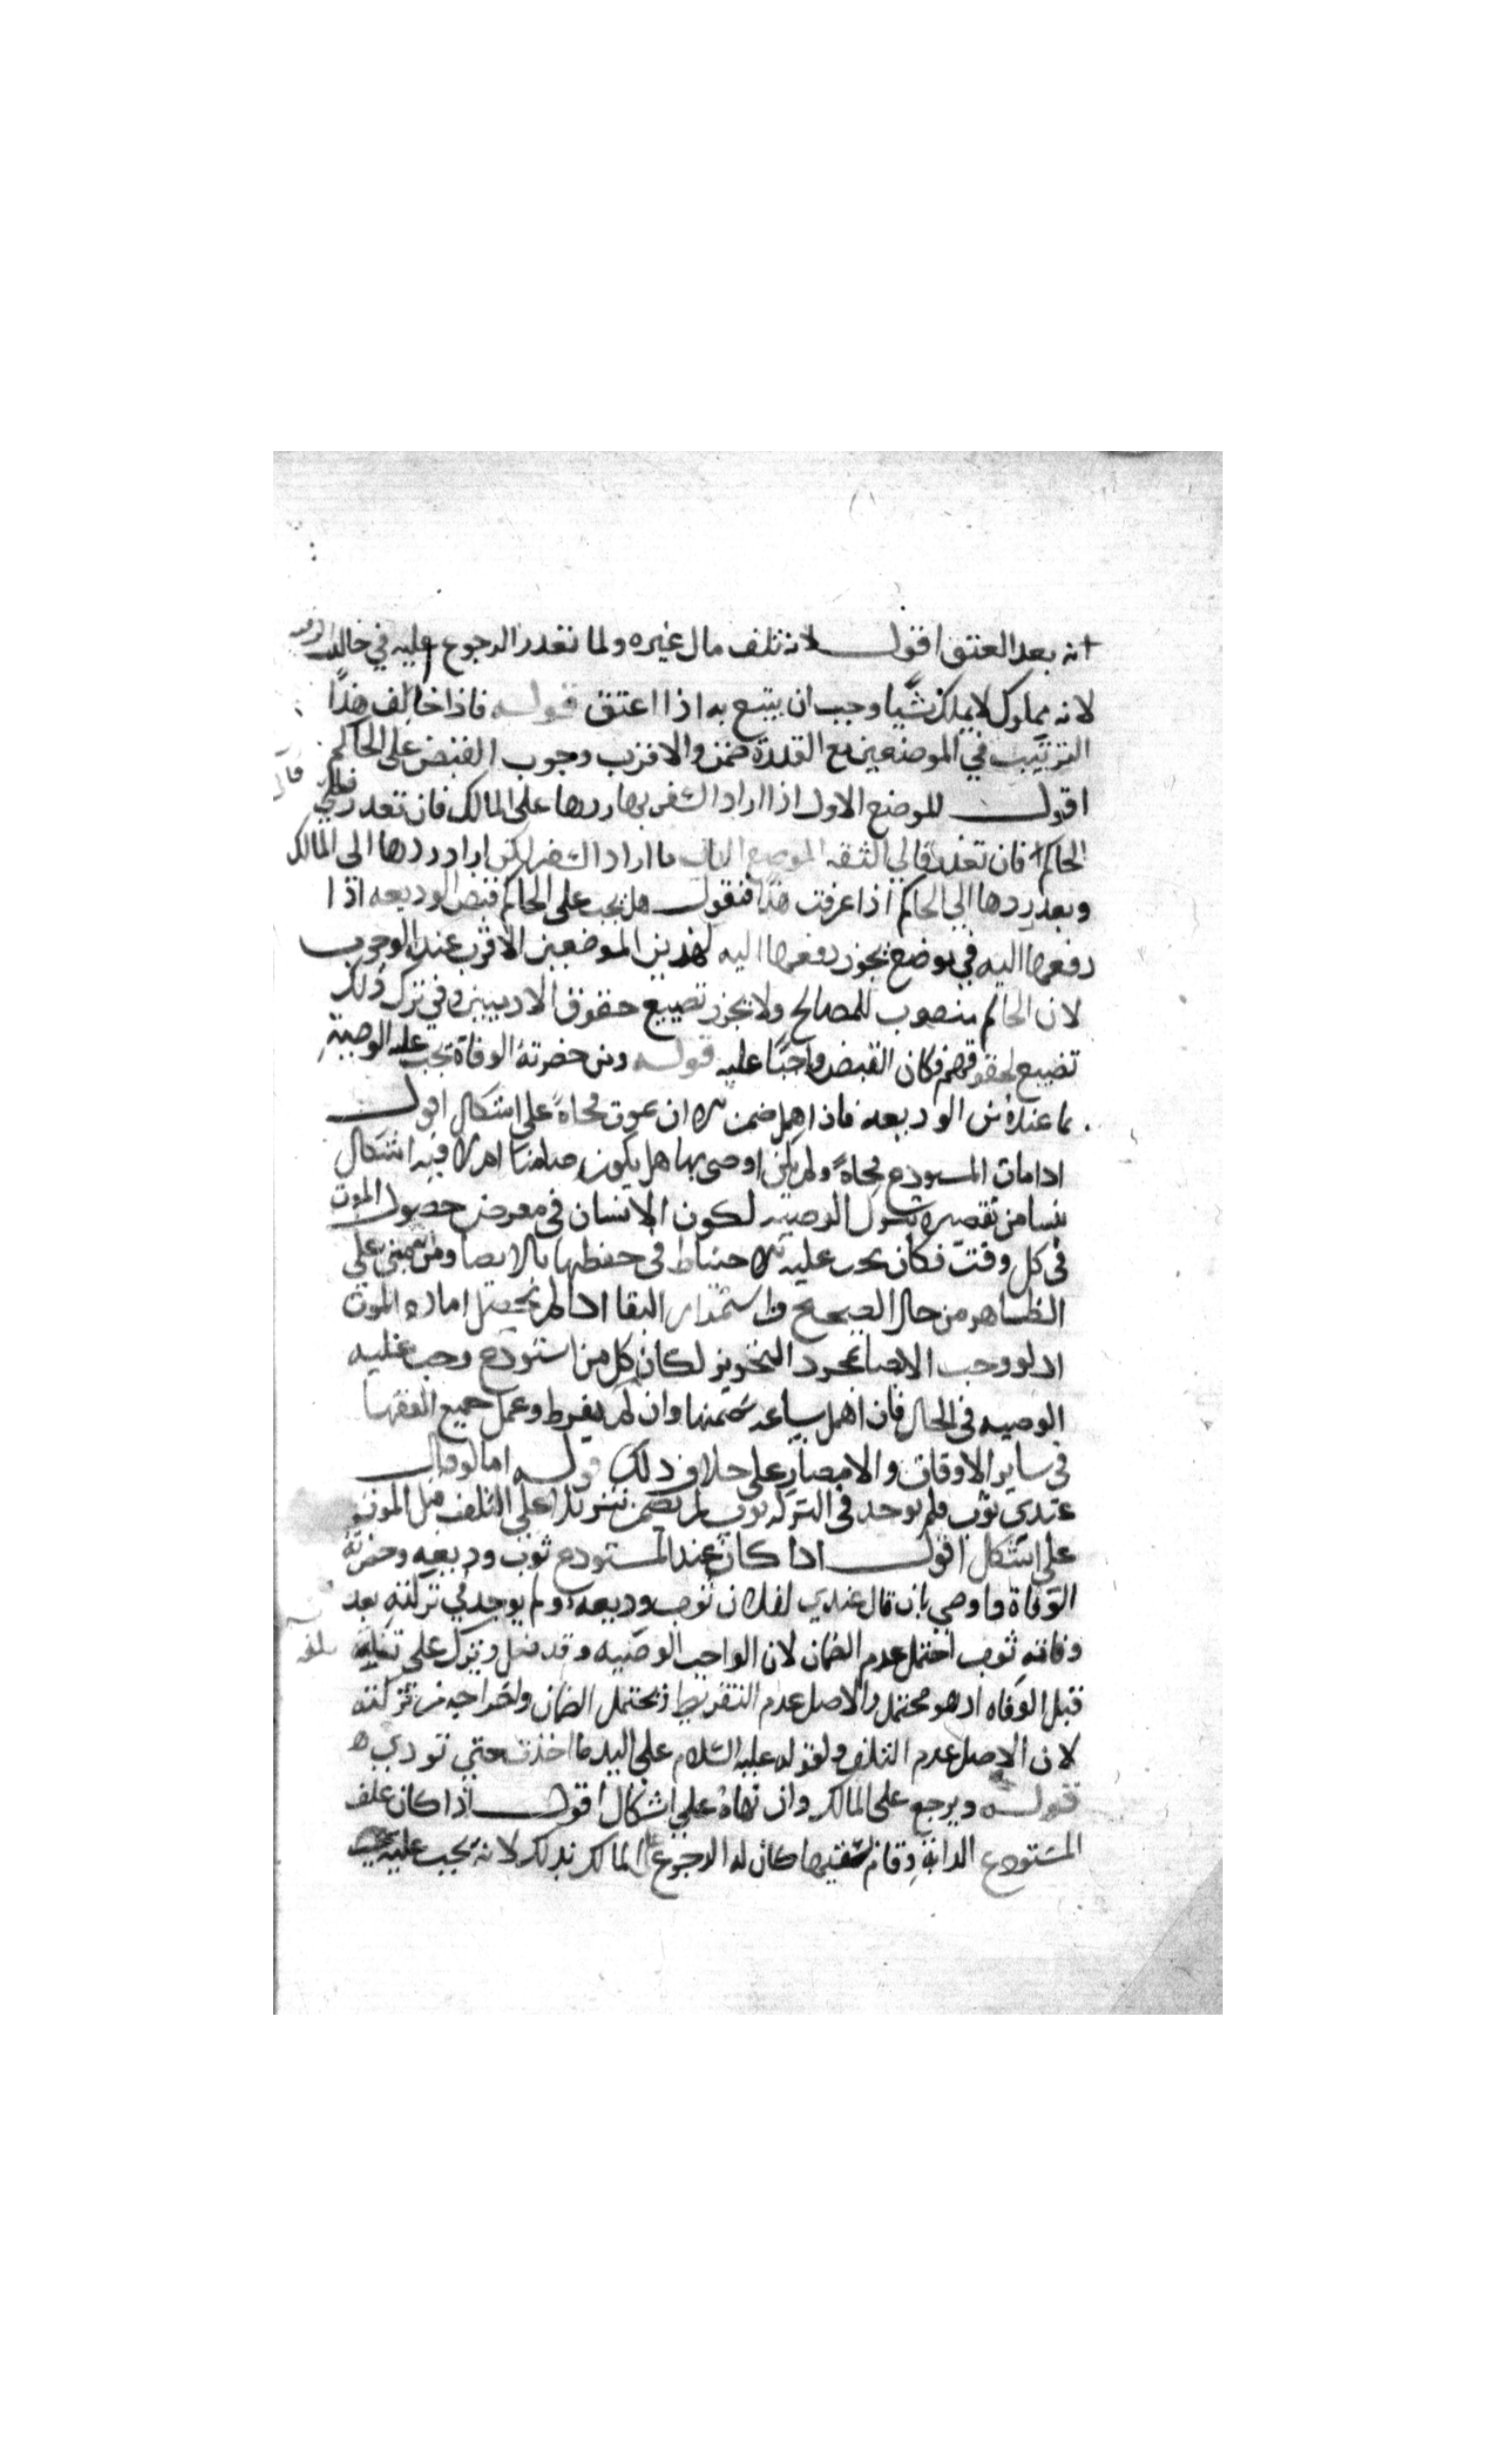 انه بعد العتق اقول لانه تلف مال غيره ولما تعذر الرجوع عليه في حال الرقيه
لانه مملوك لا يملك شيا وجب ان يتبع به اذا اعتق قوله فاذا خالف هذا
الترتيب في الموضعين مع القدرة ضمن والاقرب وجوب القبض على الحاكم
اقول الموضع الاول اذا اراد السفر بها ردها على المالك فان تعذر فالى
الحاكم فان تعذر فالي الثقه الموضع الثاني ما اراد السفر لكن اراد ردها الى المالك
وبعد ردها الي الحاكم اذا عرفت هذا فنقول هل يجب على الحاكم قبض الوديعه اذا
دفعها اليه في موضع يجوز دفعها اليه لهذين الموضعين الاقرب عنده الوجوب
لان الحاكم منصوب للمصالح ولا يجوز تضييع حقوق الادميين وفي ترك ذلك
تضييع لحقوقهم فكان القبض واجبا عليه قوله ومن حضرته الوفاة يجب عليه الوصية
بما عنده من الوديعه فاذا اهمل ضمن الا ان يموت فجاة على اشكال اقول
اذا مات المستودع فجاة ولم يكن اوصى بها هل يكون ضامنا ام لا فيه اشكال
ينشا من تقصيره بترك الوصيه لكون الانسان في معرض حصول الموت
في كل وقت فكان يجب عليه الاحتياط في حفظها بالايصا ومن على
الظاهر من حال الصحيح واستمرار البقا اذا لم يحصل اماره الموت
اذ لو وجب الايصا بمجرد التجويز لكان كل من استودع وجب عليه
الوصيه في الحال فان اهمل ساعه ضمنها وان لم يفرط وعمل جميع الفقها
في ساير الاوقات والامصار على خلاف ذلك قوله اما لو قال
عندي ثوب فلم يوجد في التركه ثوب لم يضمن تنزيلا على التلف قبل الموت
على اشكال اقول اذا كان عند المستودع ثوب وديعه وحضرته
الوفاة واوصي بان قال عندي لفلان ثوب وديعه ولم يوجد في تركته بعد
وفاته ثوب احتمل عدم الضمان لان الواجب الوصيه وقد فعل وينزل على تلفه
قبل الوفاه اذ هو محتمل والاصل عدم التفريط ويحتمل الضمان واخراجه من تركته
لان الاصل عدم التلف ولقوله عليه السلام على اليد ما اخذت حتى تودي
قوله ويرجع على المالك وان نهاه علي اشكال اقول اذا كان علف
المستودع الدابة وقام بسقيها كان له الرجوع على المالك بذلك لانه يجب عليه